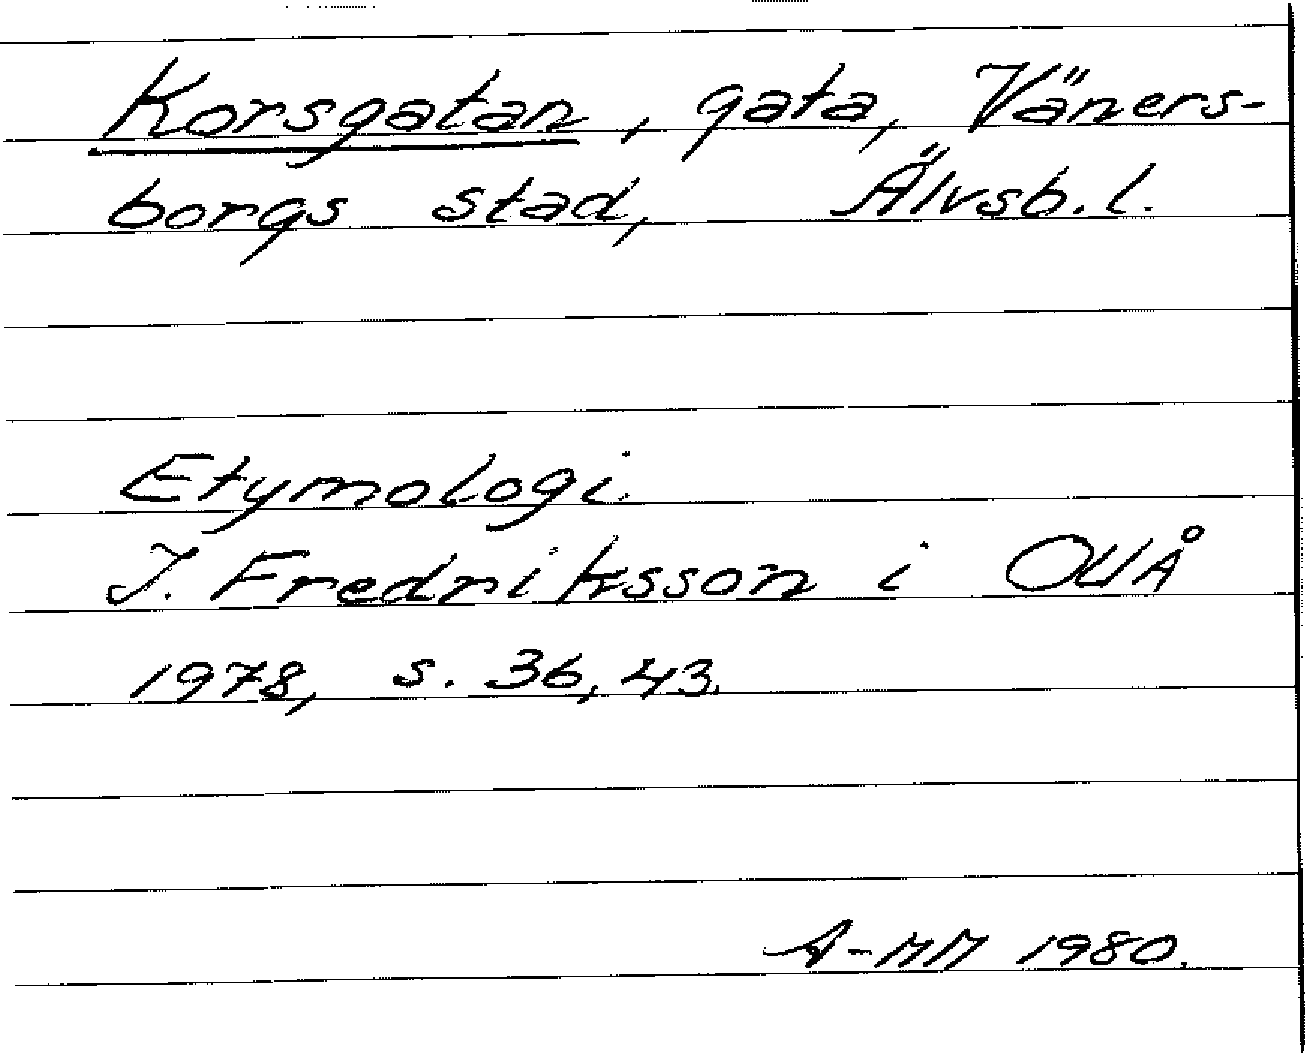 Korsgatan, gata, Väners-
borgs stad, Älvsb. l.
Etymologi.
I. Fredriksson i OUÅ
1978, s. 36, 43.
A-MM 1980.